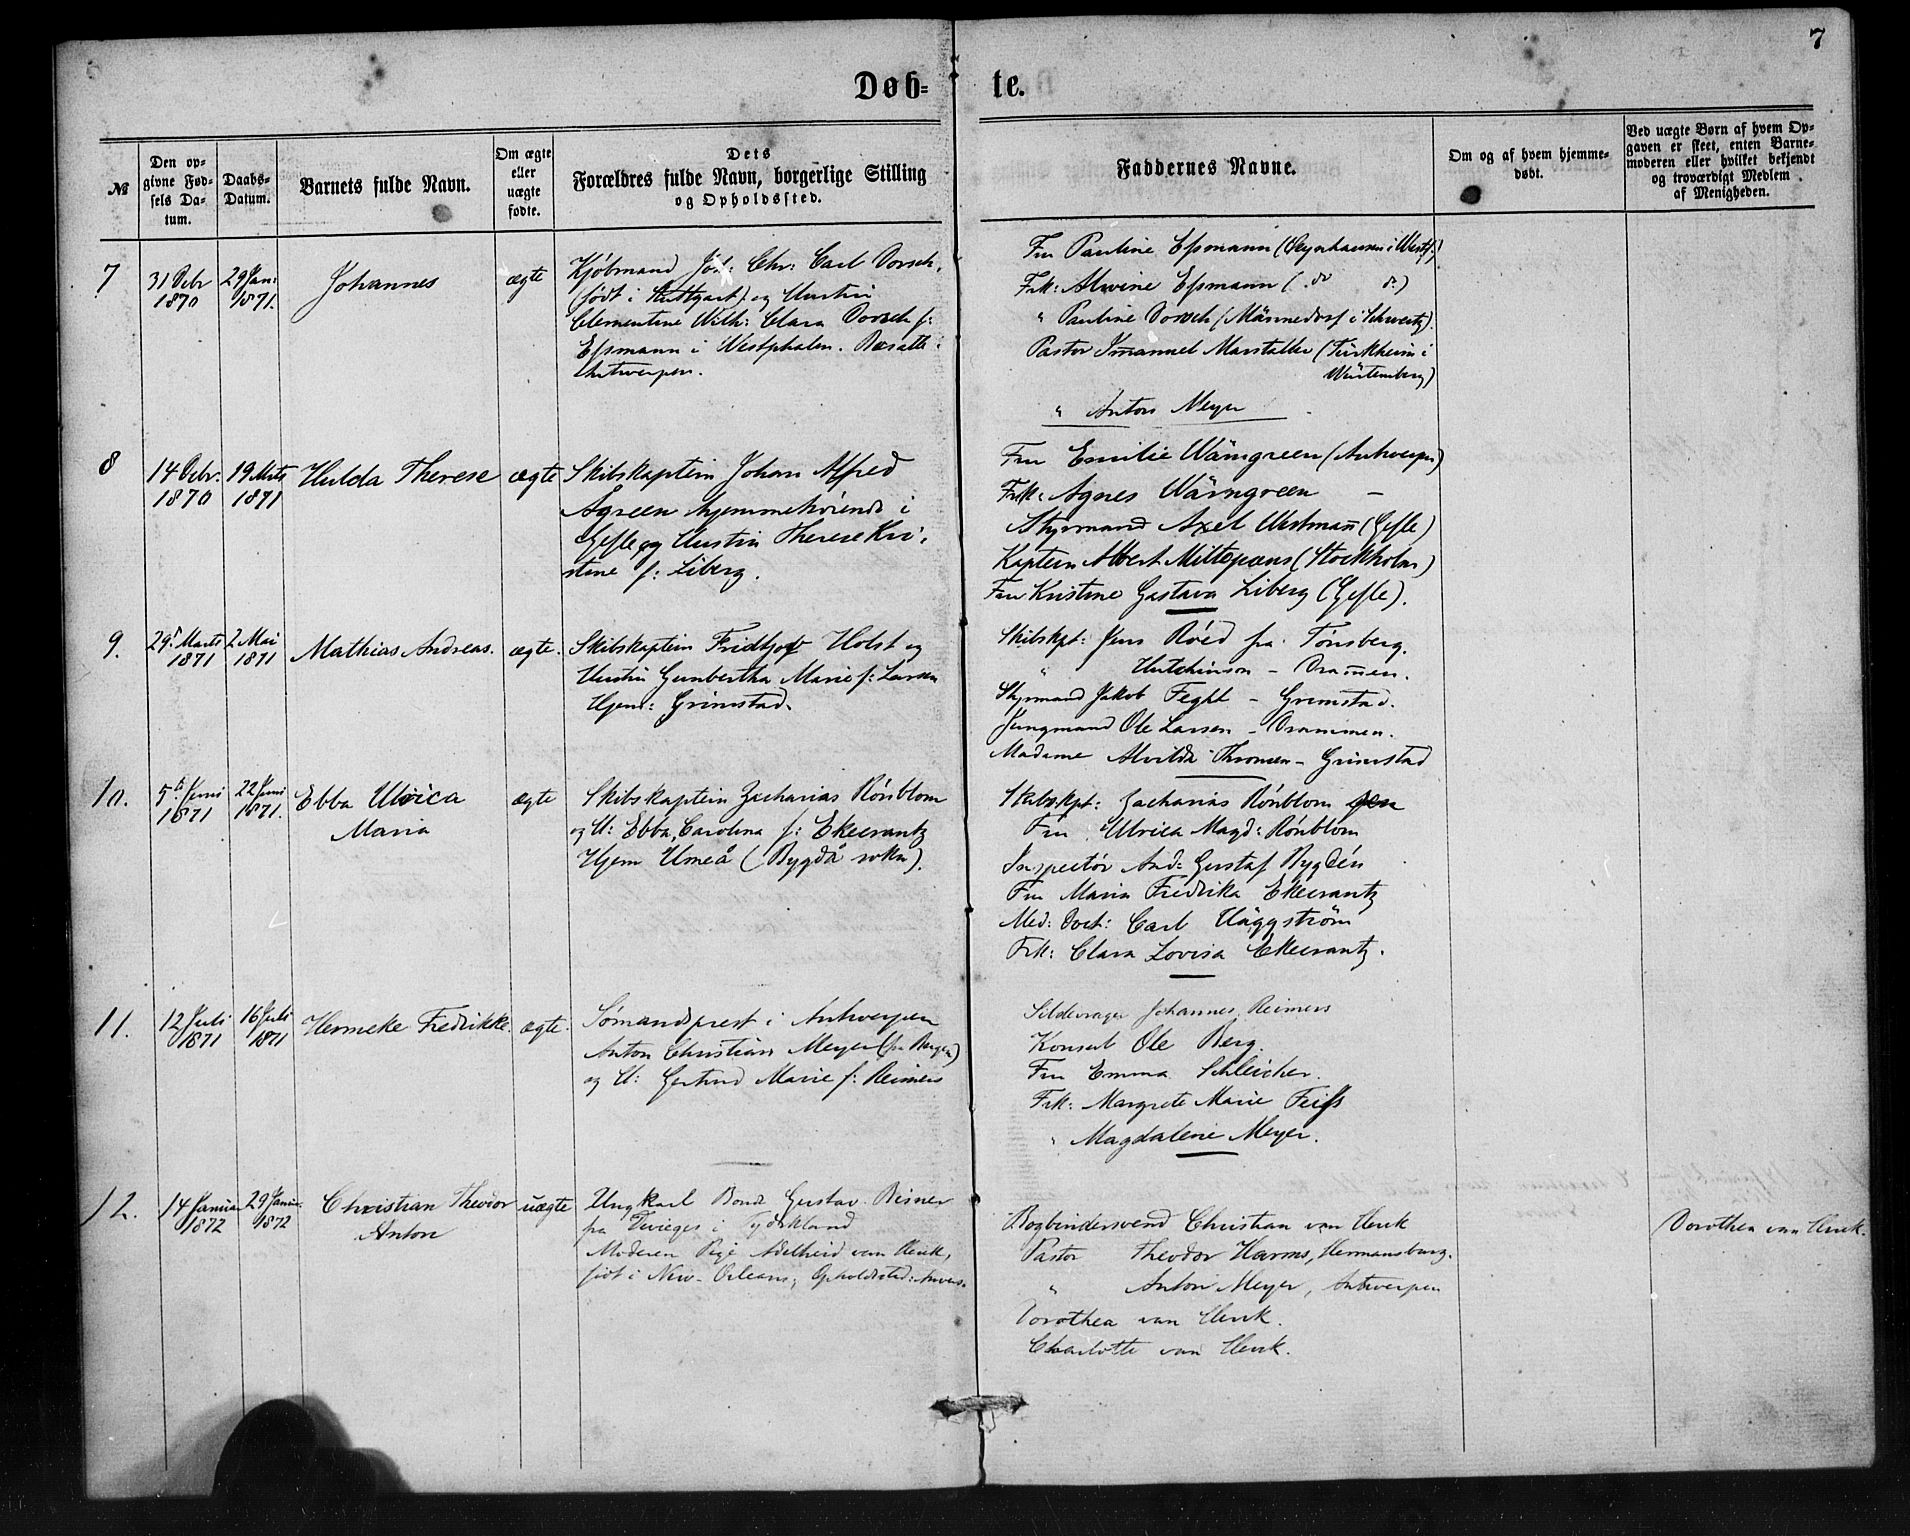 7
Døb-te.
№
Den op-
givne Fød-
sels Da-
tum.
Daabs-
Datum.
Barnets fulde Navn.
Om ægte
eller
uægte
fødte.
Dets
Forældres fulde Navn, borgerlige Stilling
og Opholdssted.
Faddernes Navne.
Om og af hvem hjemme-
døbt.
Ved uægte Børn af hvem Op-
gaven er skeet, enten Barne-
moderen eller hvilket bekjendt
og troværdigt Medlem
af Menigheden.
7
31 Debr
1870
29 Jan:
1871.
Johannes
ægte
Kjøbmand Joh: Chr: Carl Dorsch,
(født i Stuttgart) og Hustru
Clementine Wilh: Clara Dorsch f:
Essmann i Westphalen. Bosatte i
Antwerpen.
Fru Pauline Essmann (Oeynhausen i Westf:)
Frk: Alwine Essmann ( do do)
" Pauline Dorsch (Männedorf i Schweitz).
Pastor Imanuel Marstaller (Türkheim i
Würtemberg)
" Anton Meyer
8
14 Debr.
1870
19 Mrts
1871
Hulda Therese
ægte
Skibskaptein Johan Alfred
Ågreen hjemmehörende i
Gefle og Hustru Therese Kri-
stine f: Liberg.
Fru Emilie Wärngreen (Antwerpen)
Frk: Agnes Wärngreen –
Styrmand Axel Westman (Gefle)
Kaptein Albert (Stockholm)
Fru Kristine Gustava Liberg (Gefle).
9.
29 Marts
1871
2 Mai
1871
Mathias Andreas.
ægte.
Skibskaptein Fridtjof Holst og
Hustru Gunbertha Marie f: Larsen
Hjem: Grimstad.
Skibskpt: Jens Röed fra Tønsberg.
" Hutchinson – Dramen.
Styrmand Jakob Feght – Grimstad.
Jungmand Ole Larsen – Drammen.
Madame Alvilda Thromsen – Grimstad
10.
5t Juni
1871
22 Juni
1871.
Ebba Ulrica
Maria
ægte
Skibskaptein Zacharias Rönblom
og H: Ebba Carolina f: Ekecrantz
Hjem Umeå (Bygdå sokn).
Skibskpt: Zacharias Rönblom sen
Fru Ulrica Magd: Rönblom
Inspectör And: Gustaf Bygdén
Fru Maria Fredrika Ekecrantz
Med: Doct: Carl Häggström
Frk: Clara Lovisa Ekecrantz.
11.
12 Juli
1871
16 Juli
1871
Henneke Fredrikke.
ægte.
Sømandsprest i Antwerpen
Anton Christian Meyer (fra Bergen)
og H: Gertrud Marie f: Reimers
Sildevrager Johannes Reimers
Konsul Ole Berg.
Fru Emma Schleicher.
Frk: Margrete Marie Feiss
" Magdalene Meyer.
12.
14 Januar
1872
29 Januar
1872
Christian Theodor
Anton
uægte
Ungkarl Gustav Bisner
fra i Tydskland
Moderen Pige Adelheid van Herk,
født i New-Orleans, Opholdssted: Anvers.
Bogbindersvend Christian van Herk
Pastor Theodor Harms, Hermansburg.
" Anton Meyer, Antwerpen
Dorothea van Herk.
Charlotte van Herk.
Dorothea van Herk.